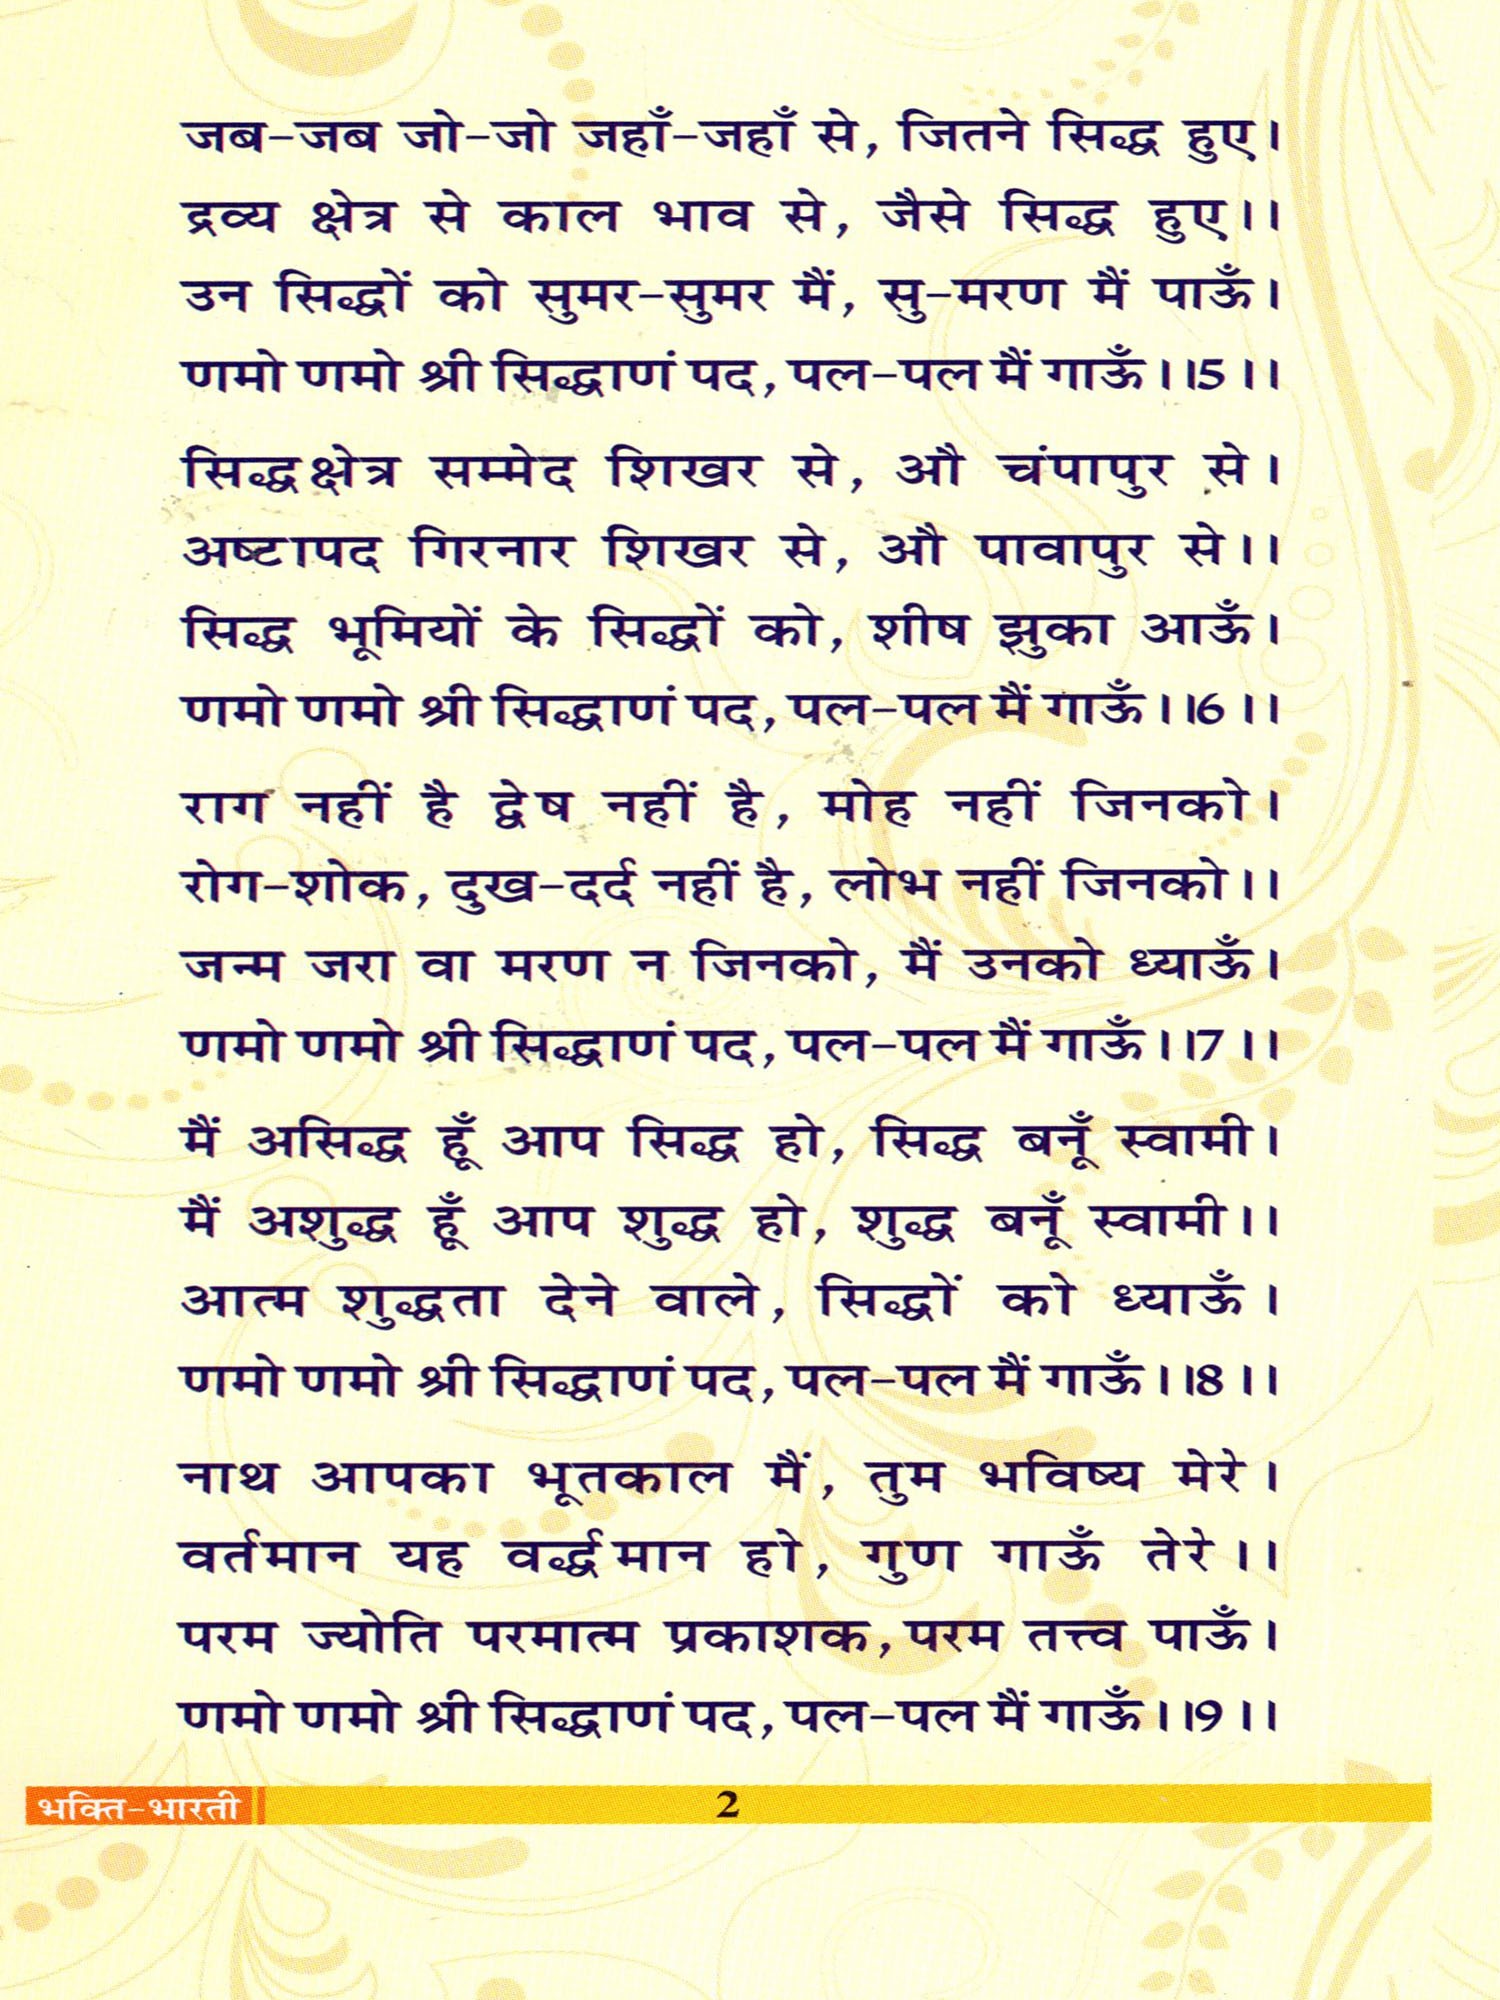 जब-जब जो-जो जहाँ-जहाँ से, जितने सिद्ध हुए।
द्रव्य क्षेत्र से काल भाव से, जैसे सिद्ध हुए।।
उन सिद्धों को सुमर-सुमर मैं, सु-मरण मैं पाऊँ।
णमो णमो श्री सिद्धाणं पद, पल-पल मैं गाऊँ।।5।।
सिद्धक्षेत्र सम्मेद शिखर से, औ चंपापुर से।
अष्टापद गिरनार शिखर से, औ पावापुर से।।
सिद्ध भूमियों के सिद्धों को, शीष झुका आऊँ।
णमो णमो श्री सिद्धाणं पद, पल-पल मैं गाऊँ।।6।।
राग नहीं है द्वेष नहीं है, मोह नहीं जिनको।
रोग-शोक, दुख-दर्द नहीं है, लोभ नहीं जिनको।।
जन्म जरा वा मरण न जिनको, मैं उनको ध्याऊँ।
णमो णमो श्री सिद्धाणं पद, पल-पल मैं गाऊँ।।7।।
मैं असिद्ध हूँ आप सिद्ध हो, सिद्ध बनूँ स्वामी।
मैं अशुद्ध हूँ आप शुद्ध हो, शुद्ध बनूँ स्वामी।।
आत्म शुद्धता देने वाले, सिद्धों को ध्याऊँ।
णमो णमो श्री सिद्धाणं पद, पल-पल मैं गाऊँ।।8।।
नाथ आपका भूतकाल मैं, तुम भविष्य मेरे।
वर्तमान यह वर्द्धमान हो, गुण गाऊँ तेरे।।
परम ज्योति परमात्म प्रकाशक, परम तत्त्व पाऊँ।
णमो णमो श्री सिद्धाणं पद, पल-पल मैं गाऊँ।।9।।
भक्ति-भारती 2